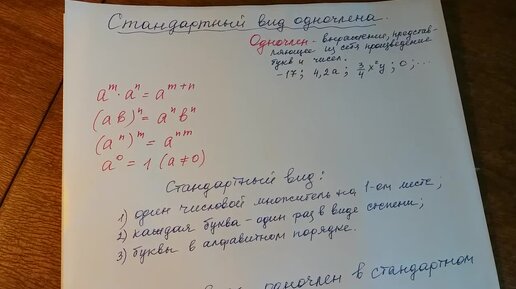 Стандартный вид одночлена.
Одночлен - выражение, представ-
ляющее из себя произведение
букв и чисел.
-17; 4,2a; 3/4 x²y; 0; ...
aᵐ·aⁿ = aᵐ⁺ⁿ
(ab)ⁿ = aⁿbⁿ
(aⁿ)ᵐ = aⁿᵐ
a⁰ = 1 (a≠0)
Стандартный вид:
1) один числовой множитель на 1-ом месте;
2) каждая буква - один раз в виде степени;
3) буквы в алфавитном порядке.
одночлен в стандартном